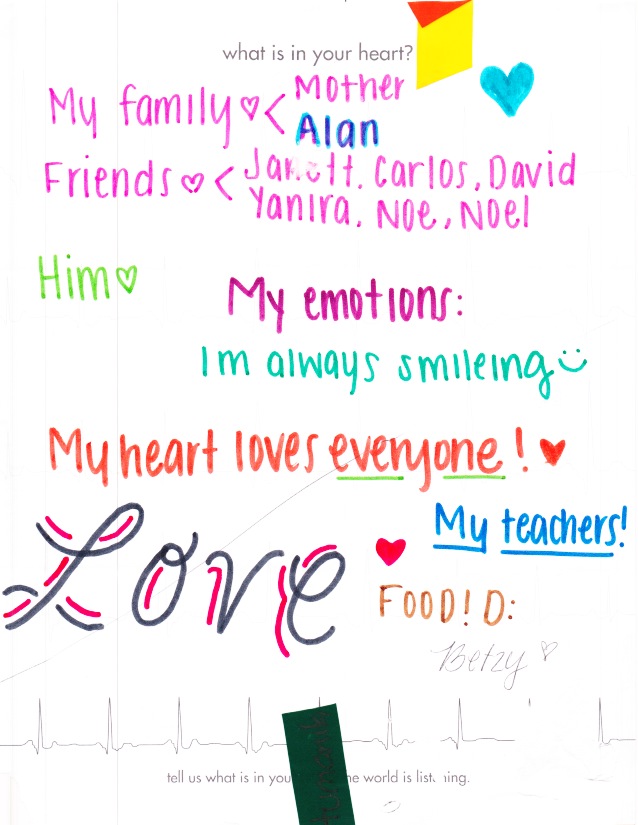 what is in your heart?
My family ♡ < Mother
Alan
Friends ♡ < Carlos, David
Yanira, Noe, Noel
Him ♡
My emotions:
Im always smileing
My heart loves everyone! ♥
My teachers!
LOVE ♥
FOOD! D:
Betzy ♡
tell us what is in you he world is list ning.